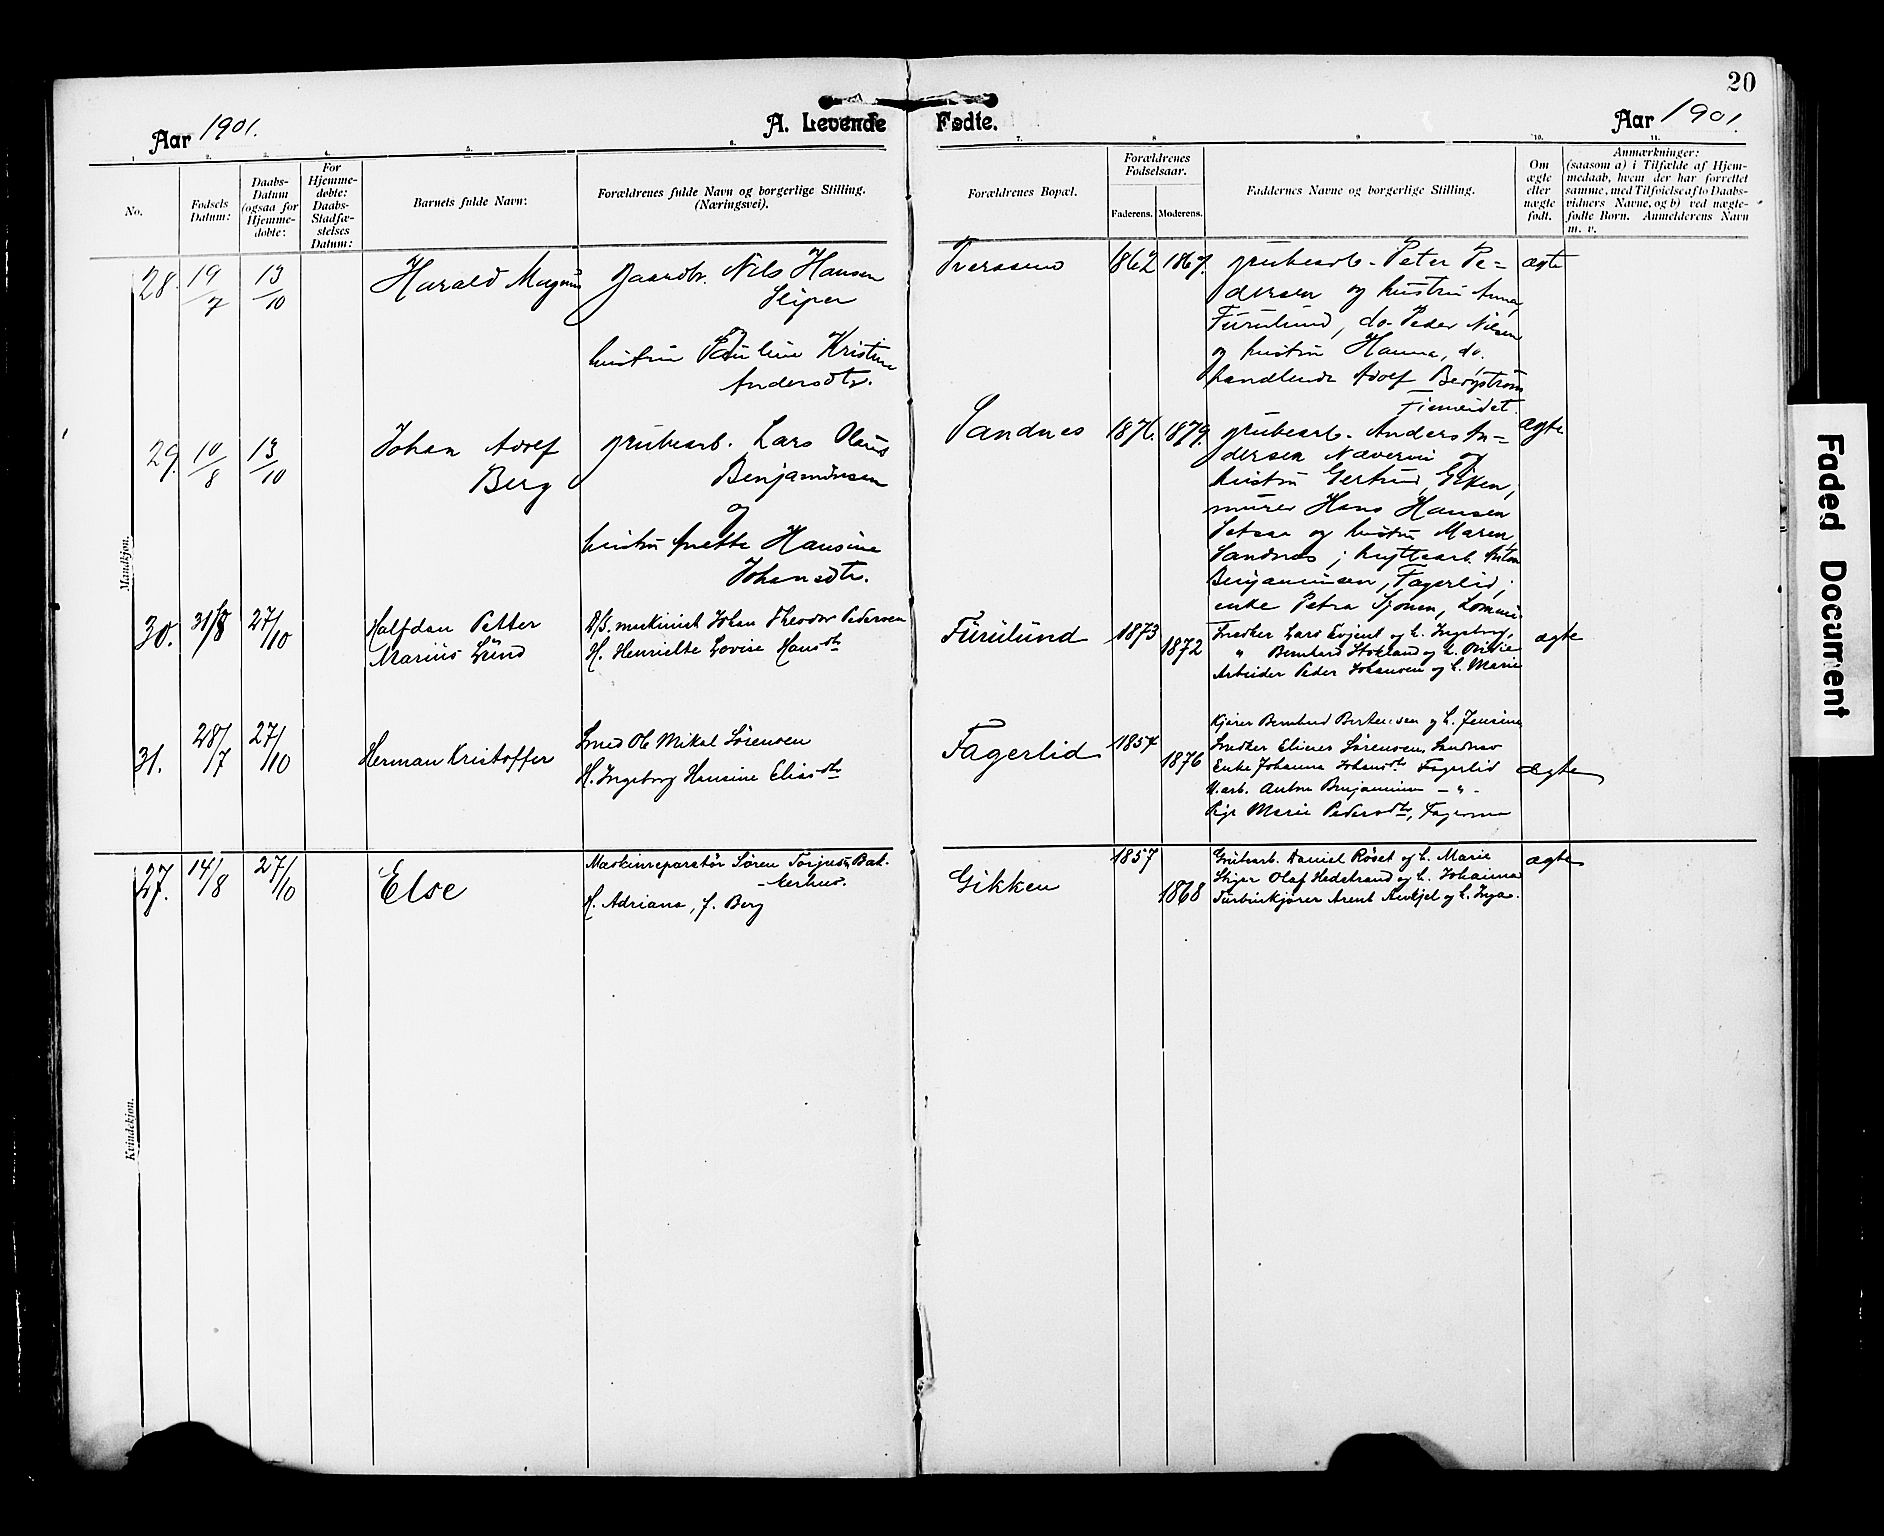 20
Aar 1901.
A. Levende Fødte.
Aar 1901.
1. 2. 3. 4. 5. 6. 7. 8 9 10. 11.
No.
Fødsels Datum:
Daabs-Datum (ogsaa for Hjemme-døbte:
For Hjemme-døbte: Daabs-Stadfæ-stelses Datum:
Barnets fulde Navn:
Forældrenes fulde Navn og borgerlige Stilling. (Næringsvei).
Forældrenes Bopæl.
Forældrenes Fødselsaar.
Faderens. Moderens.
Faddernes Navne og borgerlige Stilling.
Om ægte eller uægte født.
Anmærkninger:
(saasom a) i Tilfælde af Hjem-
medaab, hvem der har forrettet
samme, med Tilføielse af to Daabs-
vidners Navne, og b) ved uægte-
fødte Børn. Anmelderens Navn
m. v.
Mandkjøn.
28. 19/7 13/10
Harald Magnus
gaardbr. Nils Hansen
hustru Pauline Kristine
Andersdtr.
1862 1867.
grubearb. Peter Pe-
dersen og hustru Anna,
Furulund, do. Peder Nilsen
og hustru Hanna, do.
handlende Adolf Bergstrøm
Finneidet.
ægte
29. 10/8 13/10
Johan Adolf
Berg
grubearb. Lars Olaus
Benjaminsen
og
hustru Anette Hansine
Johansdtr.
Sandnes
1876. 1879.
grubearb. Anders An-
dersen Næverni og
hustru Gertrud, Giken,
murer Hans Hansen
og hustru Maren,
Sandnes; hyttearb. Anton
Benjaminsen, Fagerlid;
enke Petra
ægte
30. 31/8 27/10
Halfdan Petter
Marius Lund
D/S. maskinist Johan Theodor Pedersen
H. Henriette Lovise Hansdtr
Furulund
1873
1872
Snedker Lars Evjent og h. Ingeborg,
" Bernhard Stokland og h.
Arbeider Peder Johansen og h. Marie
ægte
31. 28/7 27/10
Herman Kristoffer
Smed Ole Mikal Sørensen
H. Ingeborg Hansine Eliasdtr
Fagerlid
1854
1876
Kjører Bernhard Berntsen og h. Jensine
Snedker Eliner Sørensen, Sandnes
Enke Johanna Johansdtr Fagerlid
H.arb. Anton Benjaminsen - " -
Pige Marie Pedersdtr, Fagermo
ægte
Kvindekjøn.
27. 14/8 27/10
Else
Maskinreparatør Søren Torjus Bak-
kerhus.
H. Adriana, f. Berg
Gikken
1857
1868
Grubearb. Daniel Røset og h. Marie
Stiger Olaf Hedstrand og h. Johanna
Turbinkjører Arent og h. Inga.
ægte
Faded Document